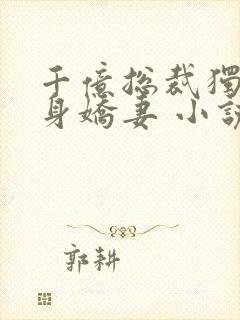 千億总裁獨
身嬌妻 小說
郭耕